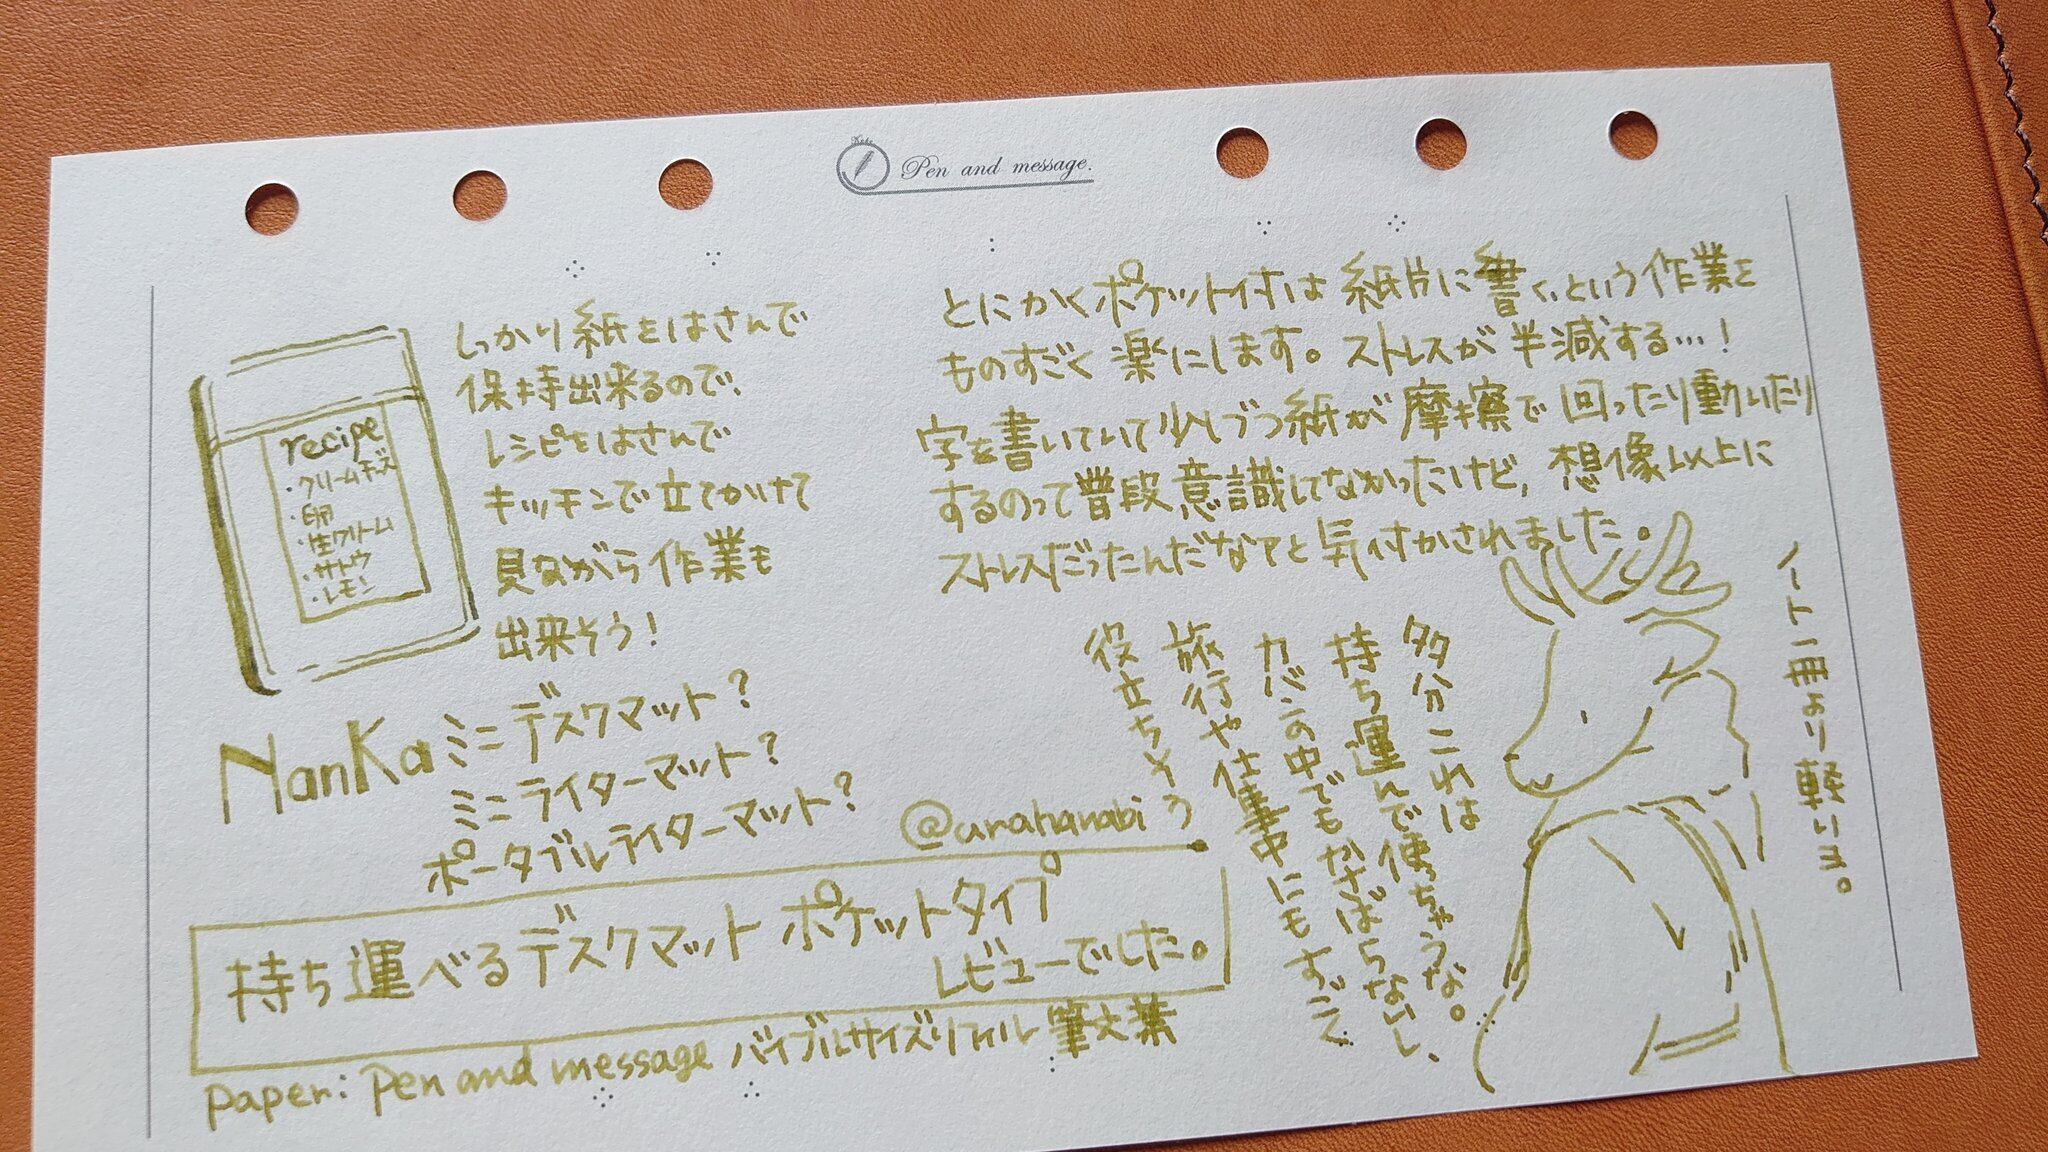 Pen and message.
しっかり紙をはさんで
保持出来るので、
レシピをはさんで
キッチンで立てかけて
見ながら作業も
出来そう！
recipe
・クリームチーズ
・卵
・生クリーム
・サトウ
・レモン
とにかくポケット付は紙片に書く、という作業を
ものすごく楽にします。ストレスが半減する…！
字を書いていて少しづつ紙が摩擦で回ったり動いたり
するのって普段意識してなかったけど、想像以上に
ストレスだったんだなぁと気付かされました。
ノート一冊より軽いよ。
多分これは
持ち運んで使っちゃうな。
カバンの中でもかさばらないし、
旅行や仕事中にもすごく
役立ちそう
NanKa ミニデスクマット？
ミニライターマット？
ポータブルライターマット？
持ち運べるデスクマット ポケットタイプ
レビューでした。
paper: Pen and message バイブルサイズリフィル 筆文葉